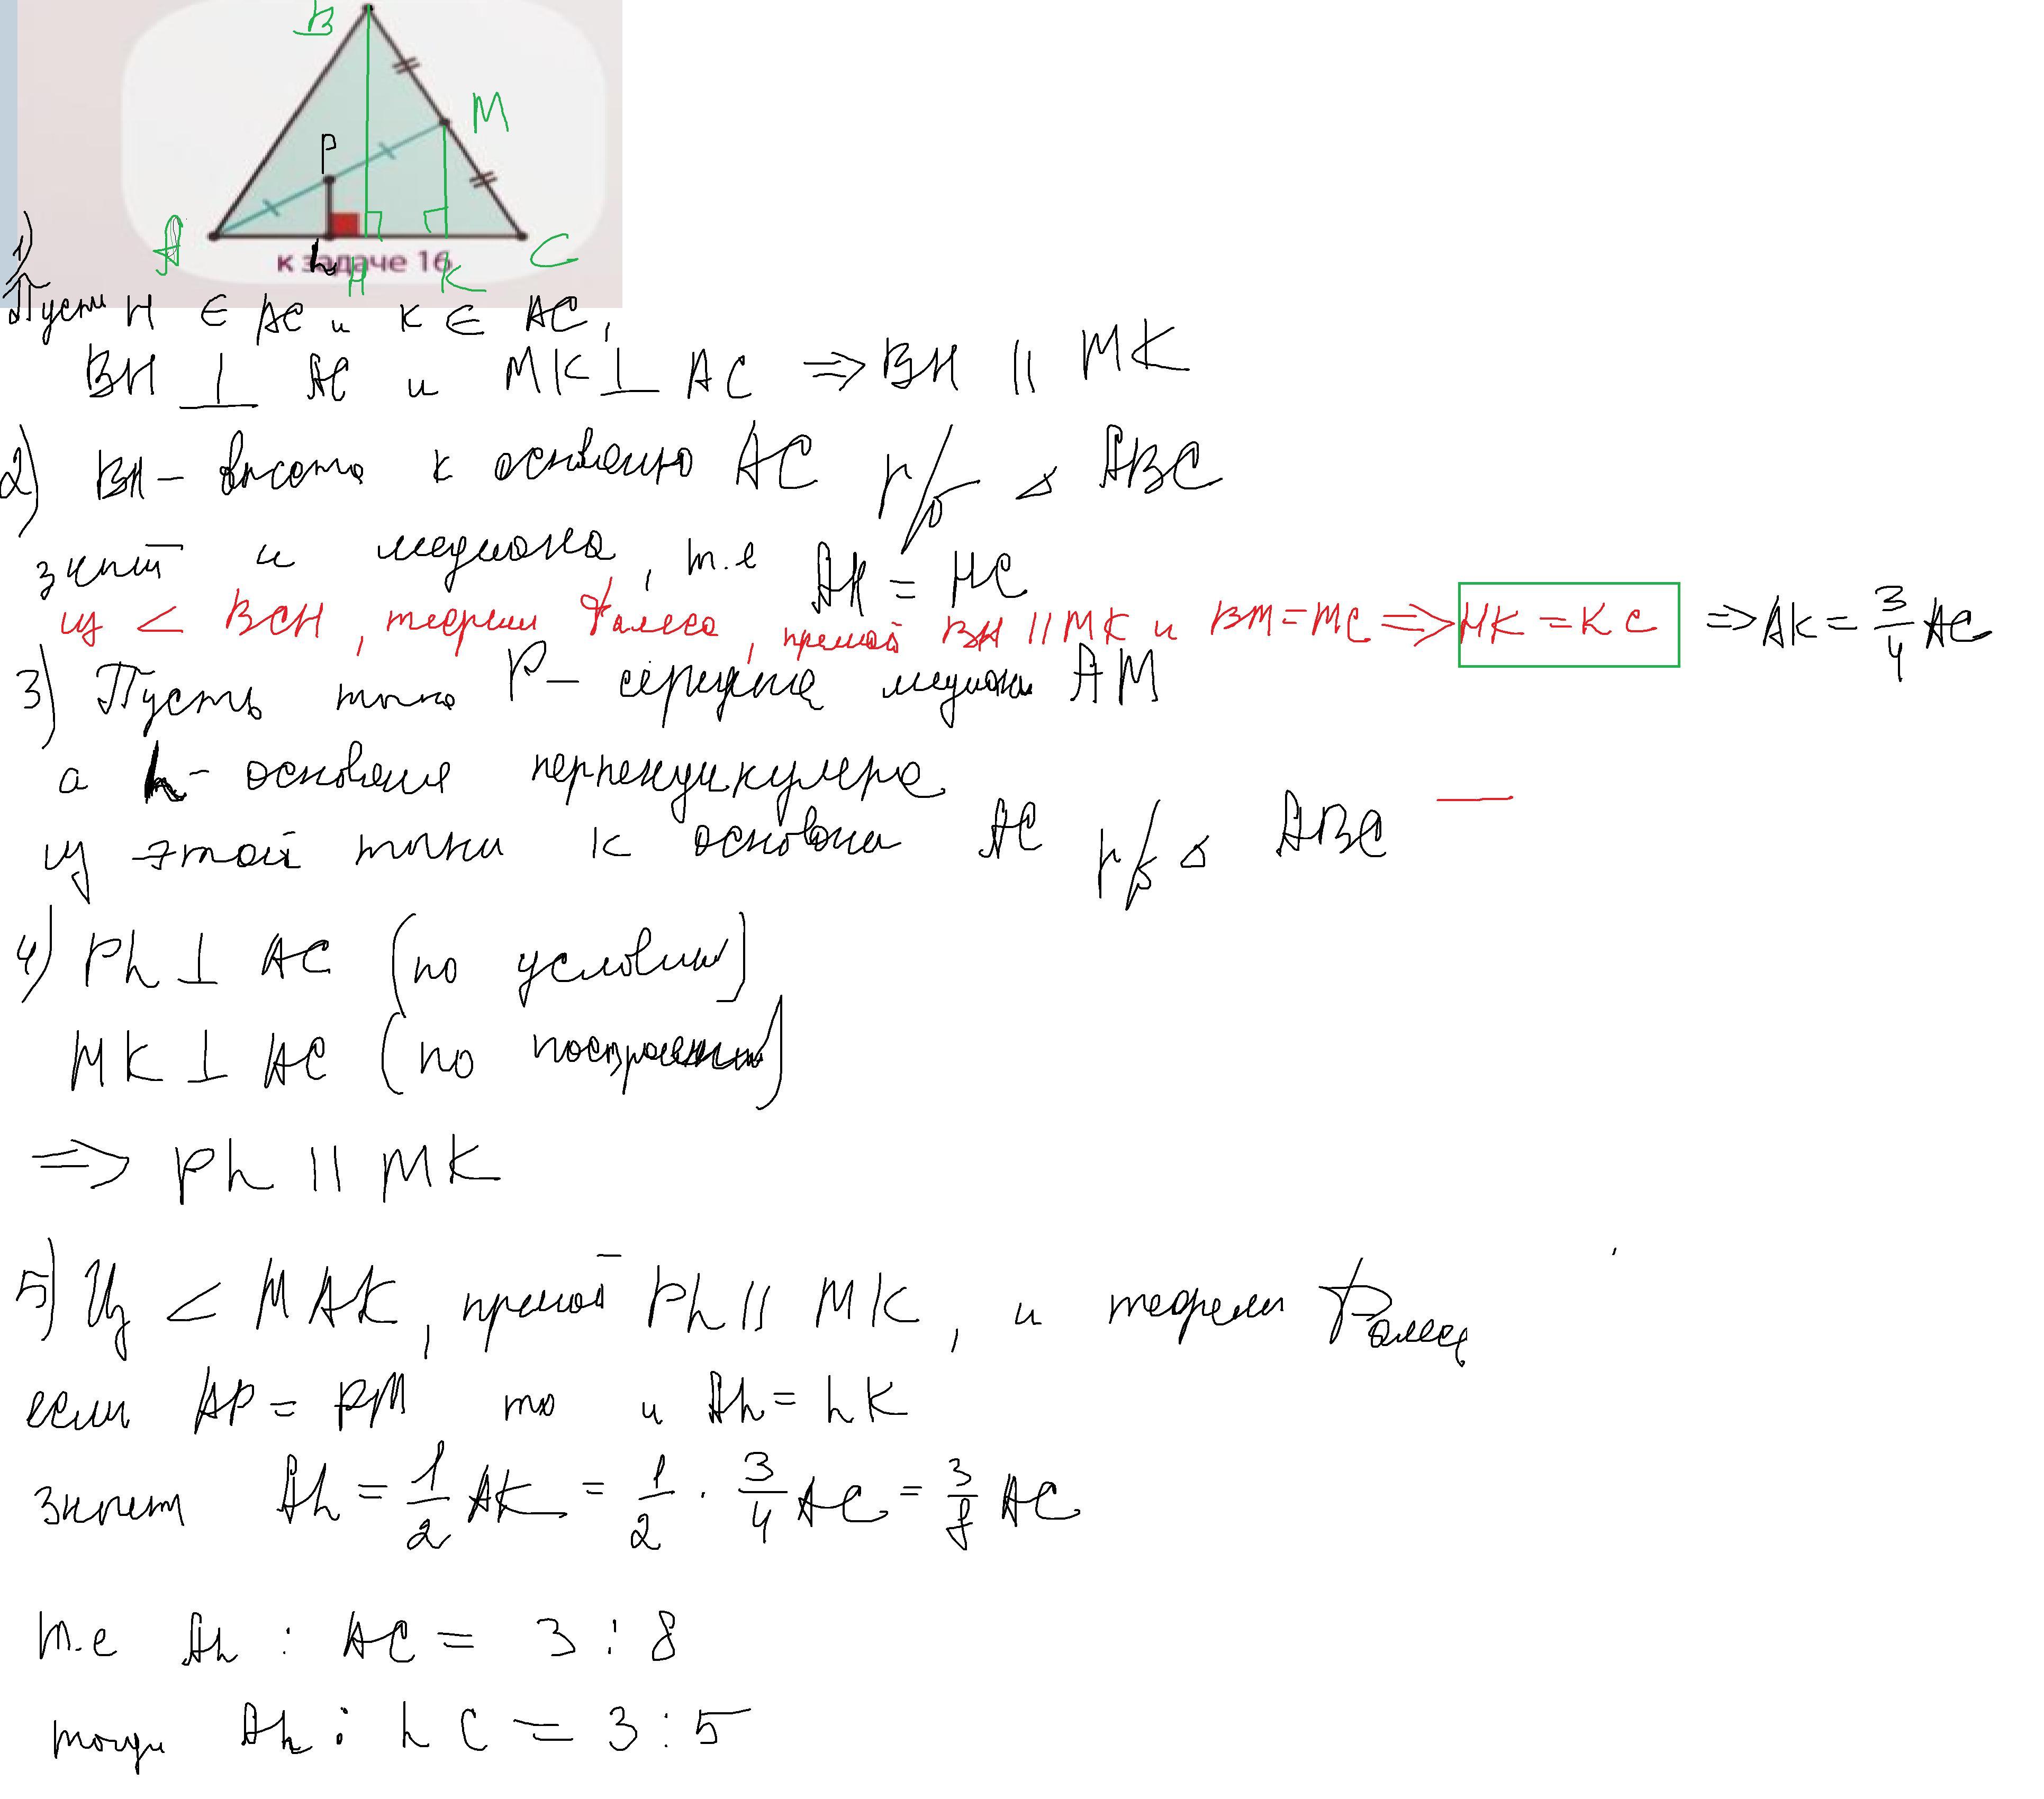 B
M
P
A
h
H
K
C
к задаче 16
1)
Пусть H ∈ AC и K ∈ AC,
BH ⊥ AC и MK ⊥ AC ⇒ BH || MK
2) BH – высота к основанию AC р/б △ ABC
значит и медиана, т.е AH = HC
из < BCH, теоремы Фалеса, прямой BH || MK и BM = MC ⇒ HK = KC ⇒ AK = 3/4 AC
3) Пусть точка P – середина медианы AM
а h – основание перпендикуляра
из этой точки к основанию AC р/б △ ABC
4) Ph ⊥ AC (по условию)
MK ⊥ AC (по построению)
⇒ Ph || MK
5) Из < MAK, прямой Ph || MK, и теоремы Фалеса
если AP = PM то и Ah = hK
значит Ah = 1/2 AK = 1/2 · 3/4 AC = 3/8 AC
т.е Ah : AC = 3 : 8
тогда Ah : hC = 3 : 5